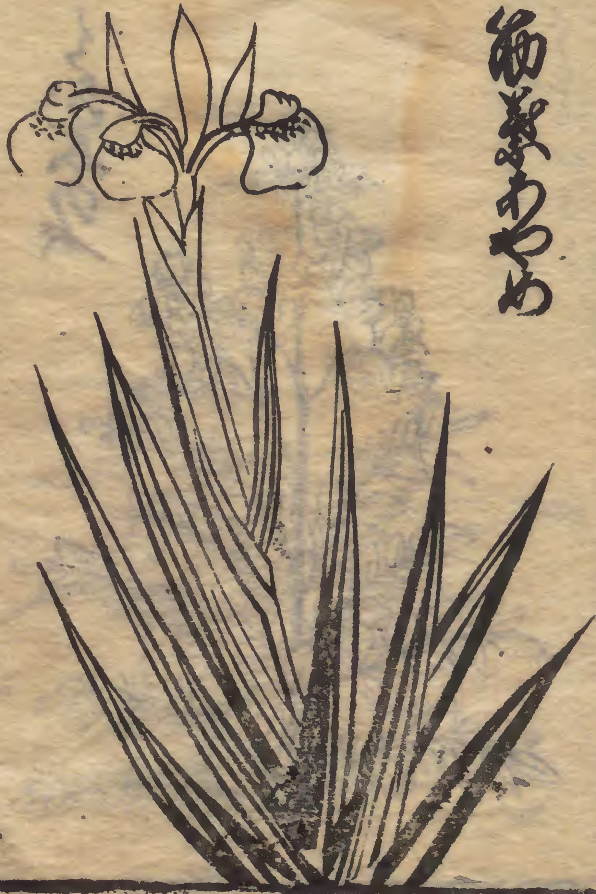 筋葉あやめ